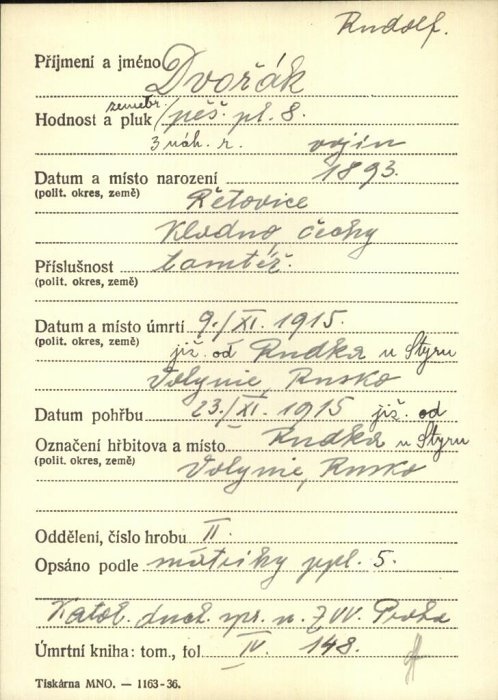 Rudolf.
Příjmení a jméno Dvořák
zeměbr.
Hodnost a pluk pěš. pl. 8.
3 náh. r. vojín
Datum a místo narození 1893.
(polit. okres, země) Řetovice
Kladno, Čechy
Příslušnost tamtéž.
(polit. okres, země)
Datum a místo úmrtí 9./XI. 1915.
(polit. okres, země) již. od Rudka u Styru
Volynie, Rusko
Datum pohřbu 23./XI. 1915 již. od
Označení hřbitova a místo Rudka u Styru
(polit. okres, země) Volynie, Rusko
Oddělení, číslo hrobu II.
Opsáno podle matriky ppl. 5.
Katol. duch. spr. n. ZVV. Praha
Úmrtní kniha: tom., fol. IV. 148.
Tiskárna MNO. — 1163-36.